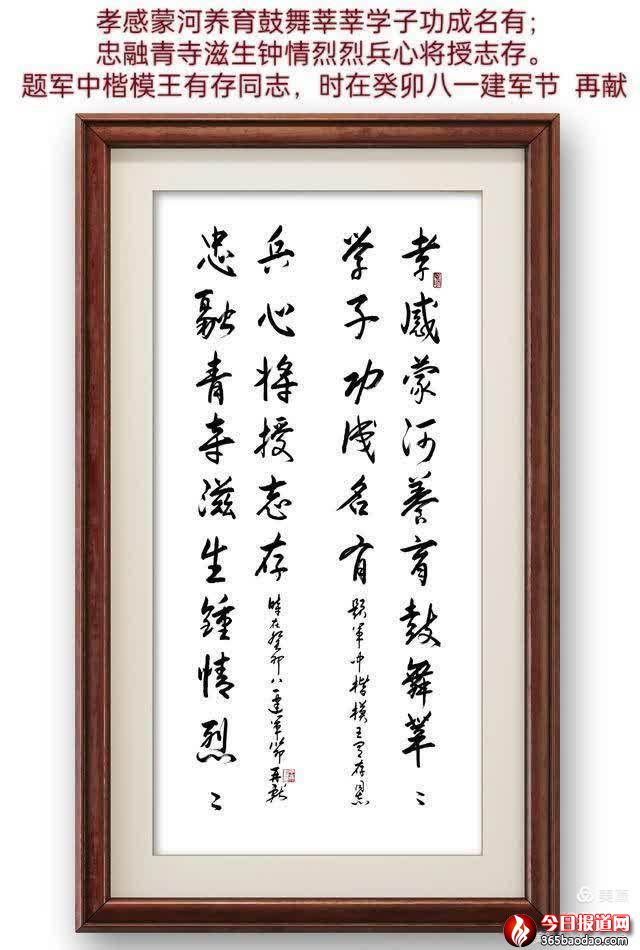 孝感蒙河养育鼓舞莘莘学子功成名有；
忠融青寺滋生钟情烈烈兵心将授志存。
题军中楷模王有存同志，时在癸卯八一建军节 再献
孝感蒙河養育鼓舞莘〻
学子功成名有
题軍中楷模王有存同志
忠融青寺滋生鍾情烈〻
兵心将授志存
時在癸卯八一建軍節再献
美篇
今日报道网
365baodao.com